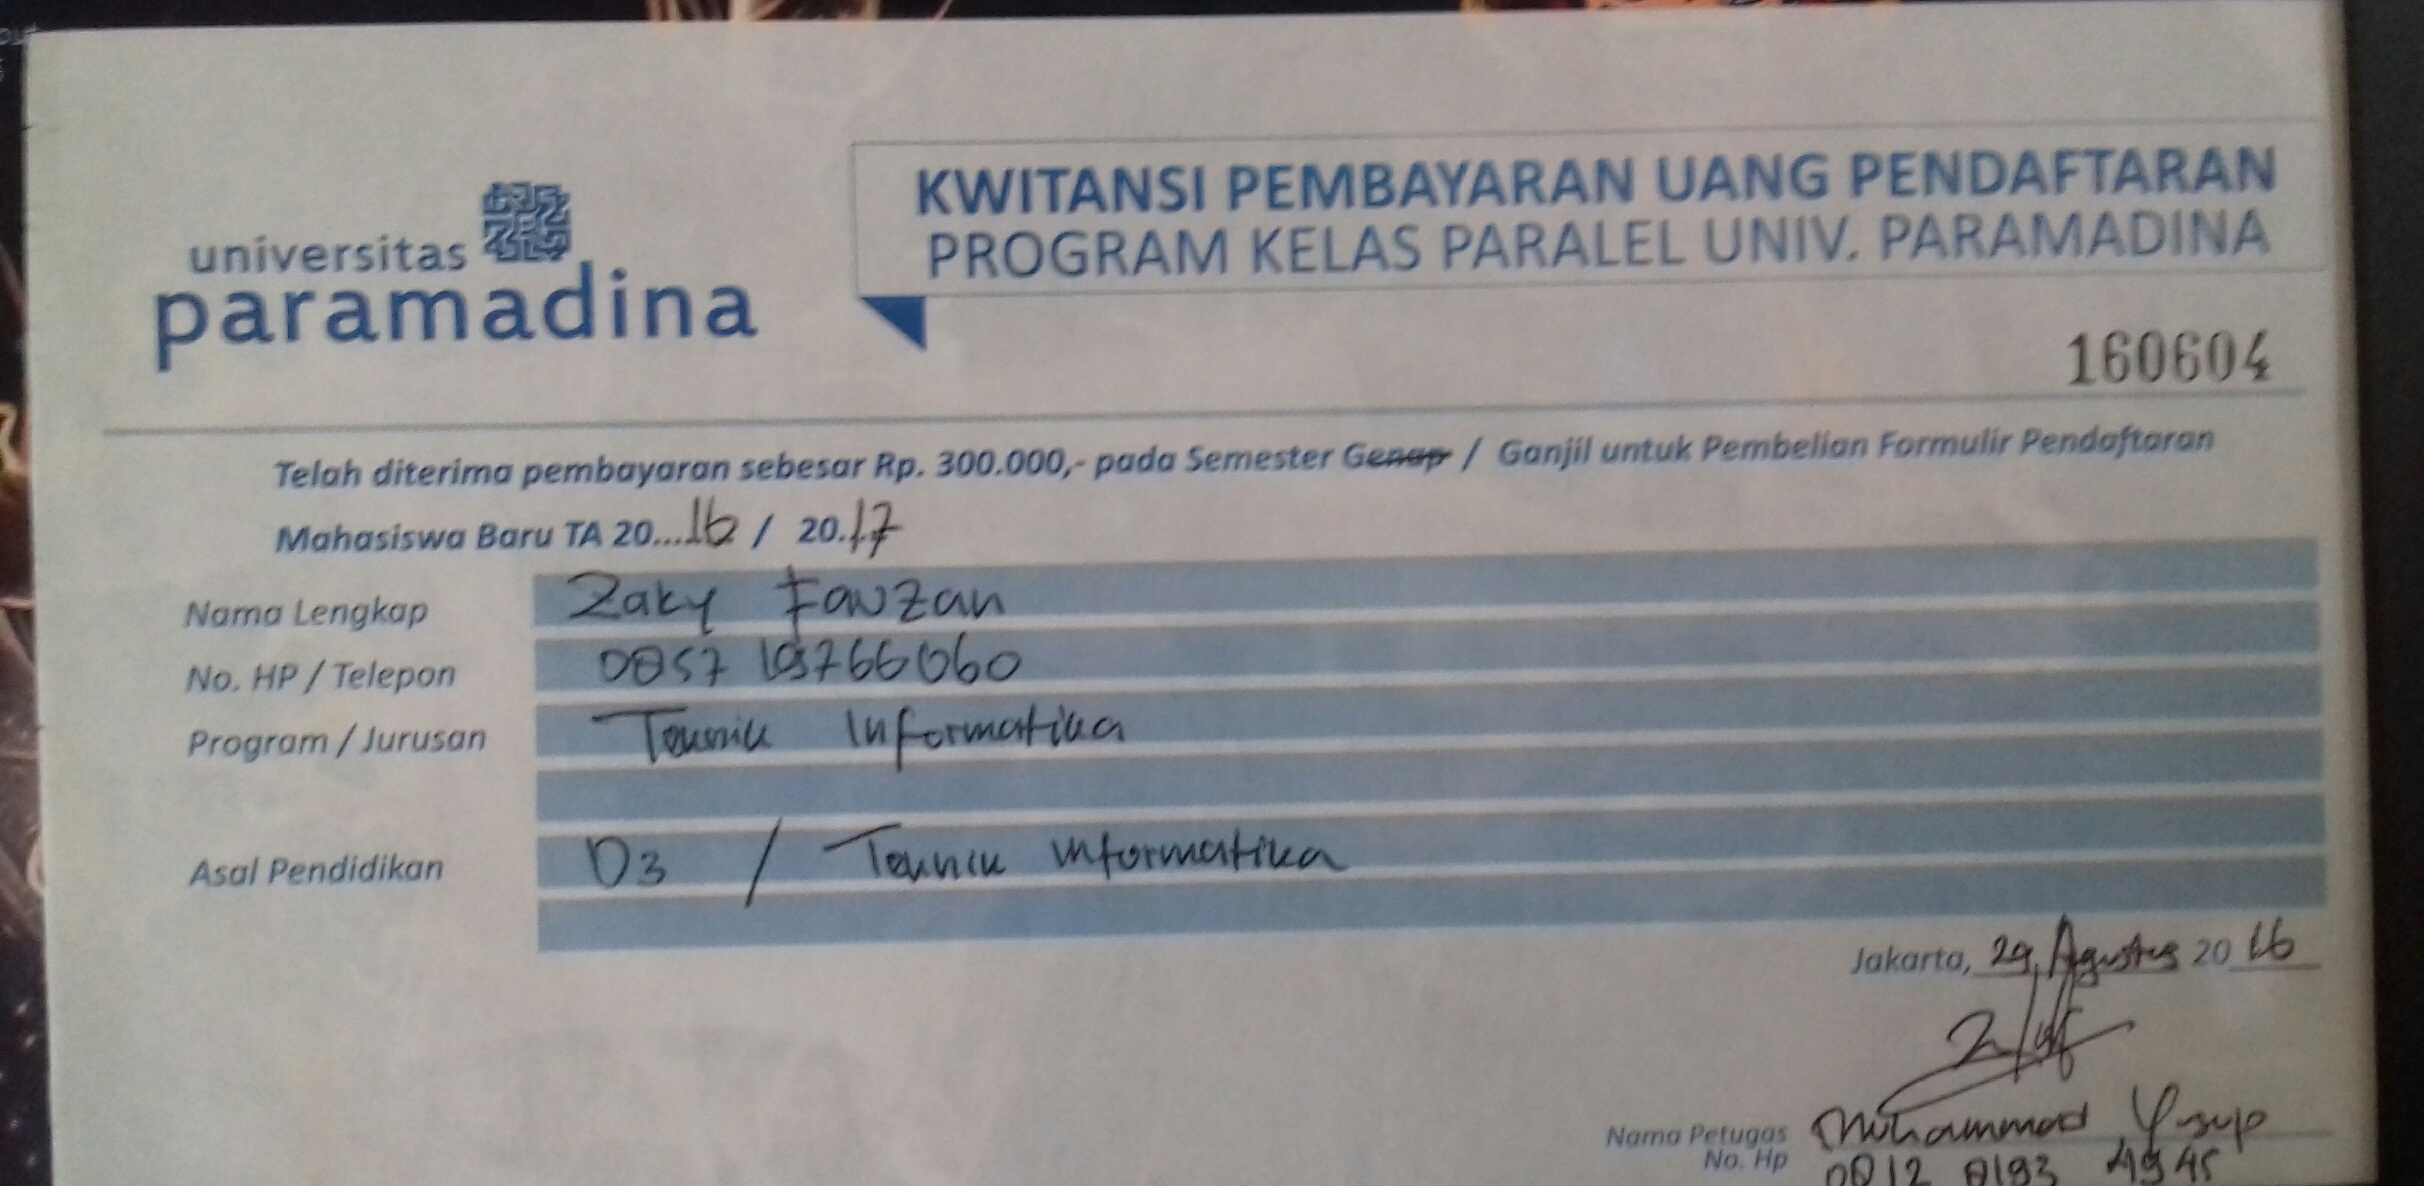 universitas
paramadina
KWITANSI PEMBAYARAN UANG PENDAFTARAN
PROGRAM KELAS PARALEL UNIV. PARAMADINA
160604
Telah diterima pembayaran sebesar Rp. 300.000,- pada Semester Genap / Ganjil untuk Pembelian Formulir Pendaftaran
Mahasiswa Baru TA 20...16 / 20.17
Nama Lengkap Zaky Fawzan
No. HP / Telepon 0857 19766060
Program / Jurusan Teknik Informatika
Asal Pendidikan D3 / Teknik Informatika
Jakarta, 29, Agustus 2016
Nama Petugas Muhammad Yusup
No. Hp 0812 8193 4945